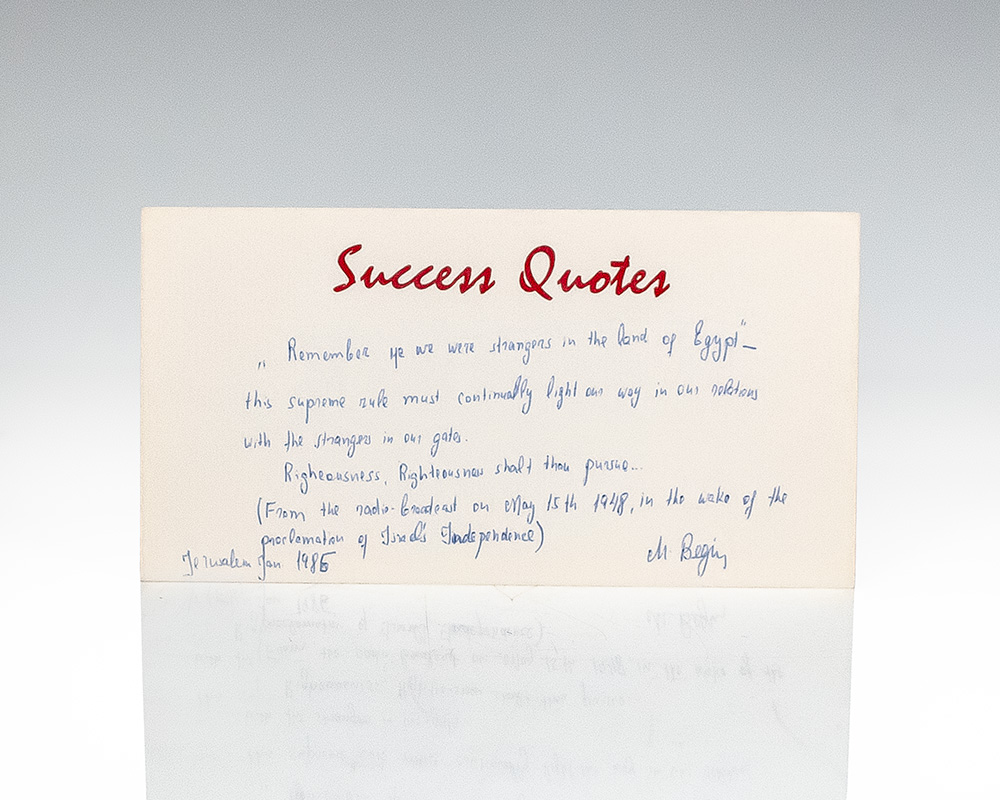 Success Quotes
„ Remember ye we were strangers in the land of Egypt" –
this supreme rule must continually light our way in our relations
with the strangers in our gates.
Righeousness, Righteousness shalt thou pursue...
(From the radio-broadcast on May 15th 1948, in the wake of the
proclamation of Israel's Independence)
Jerusalem Jan 1986
M. Begin